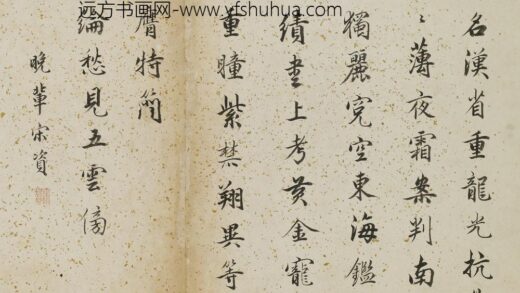 远方书画网-www.yfshuhua.com
名漢省重龍光抗
薄夜霜案判南
獨麗空東海鑑
績書上考黃金寵
重瞳紫禁翔異等
膺特簡
綸愁見五雲
晚輩宋資